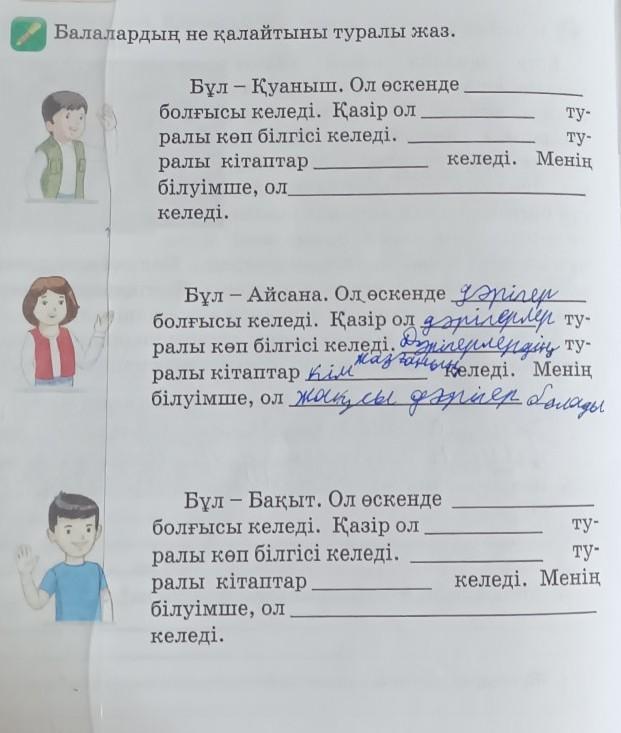 Балалардың не қалайтыны туралы жаз.
Бұл – Қуаныш. Ол өскенде
болғысы келеді. Қазір ол ту-
ралы көп білгісі келеді. ту-
ралы кітаптар келеді. Менің
білуімше, ол
келеді.
Бұл – Айсана. Ол өскенде дәрігер
болғысы келеді. Қазір ол дәрігерлер ту-
ралы көп білгісі келеді. Дәрігерлердің ту-
ралы кітаптар кім жазғанын келеді. Менің
білуімше, ол жақсы дәрігер болады
Бұл – Бақыт. Ол өскенде
болғысы келеді. Қазір ол ту-
ралы көп білгісі келеді. ту-
ралы кітаптар келеді. Менің
білуімше, ол
келеді.